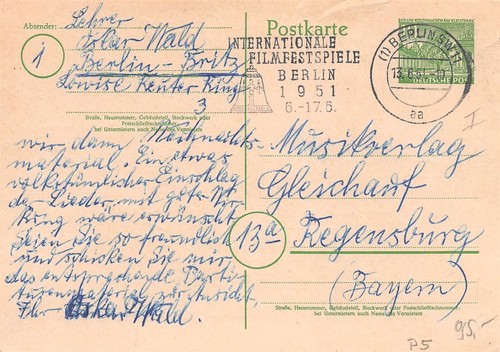 Absender:
Lehrer
Oskar Wald
Berlin-Britz
Lowise Reuter Ring
3
Straße, Hausnummer, Gebäudeteil, Stockwerk oder
Postschließfachnummer
bei Untermietern auch Name des Vermieters
wir dann Weihnachts-
material. Ein etwas
volkstümlicher Einschlag
der Lieder mit guter Wir-
kung wäre erwünscht
Seien Sie so freundlich
und schicken Sie mir
das entsprechende Parti-
turenmaterial zur Ansicht.
Ihr Oskar Wald.
Postkarte
INTERNATIONALE
FILMFESTSPIELE
BERLIN
1951
6.-17.6.
(1) BERLIN SW 11
13.6.51
aa
DEUTSCHE POST
Musikverlag
Gleichauf
13a
Regensburg
(Bayern)
Straße, Hausnummer, Gebäudeteil, Stockwerk oder Postschließfachnummer;
bei Untermietern auch Name des Vermieters
P5
95,-